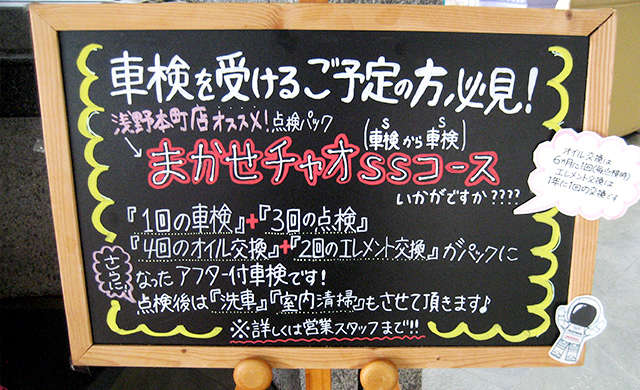 車検を受けるご予定の方、必見!
浅野本町店オススメ!点検パック
S S
(車検から車検)
まかせチャオSSコース
いかがですか????
『1回の車検』+『3回の点検』
『4回のオイル交換』+『2回のエレメント交換』がパックに
さらに、
なったアフター付車検です!
点検後は『洗車』『室内清掃』もさせて頂きます♪
※詳しくは営業スタッフまで!!
オイル交換は
6ヵ月に1回(毎点検時)
エレメント交換は
1年に1回の交換です